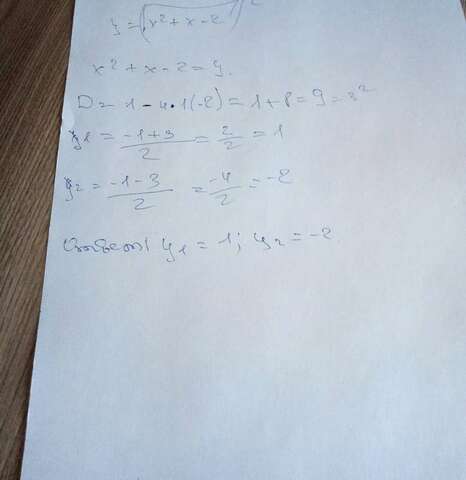 y = (x² + x - 2)²
x² + x - 2 = y.
D = 1 - 4·1(-2) = 1 + 8 = 9 = 3²
y₁ = \frac{-1+3}{2} = \frac{2}{2} = 1
y₂ = \frac{-1-3}{2} = \frac{-4}{2} = -2
Ответ: y₁ = 1; y₂ = -2.